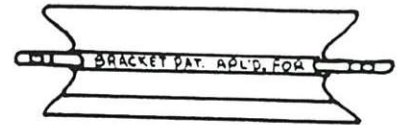 BRACKET PAT. APL'D. FOR